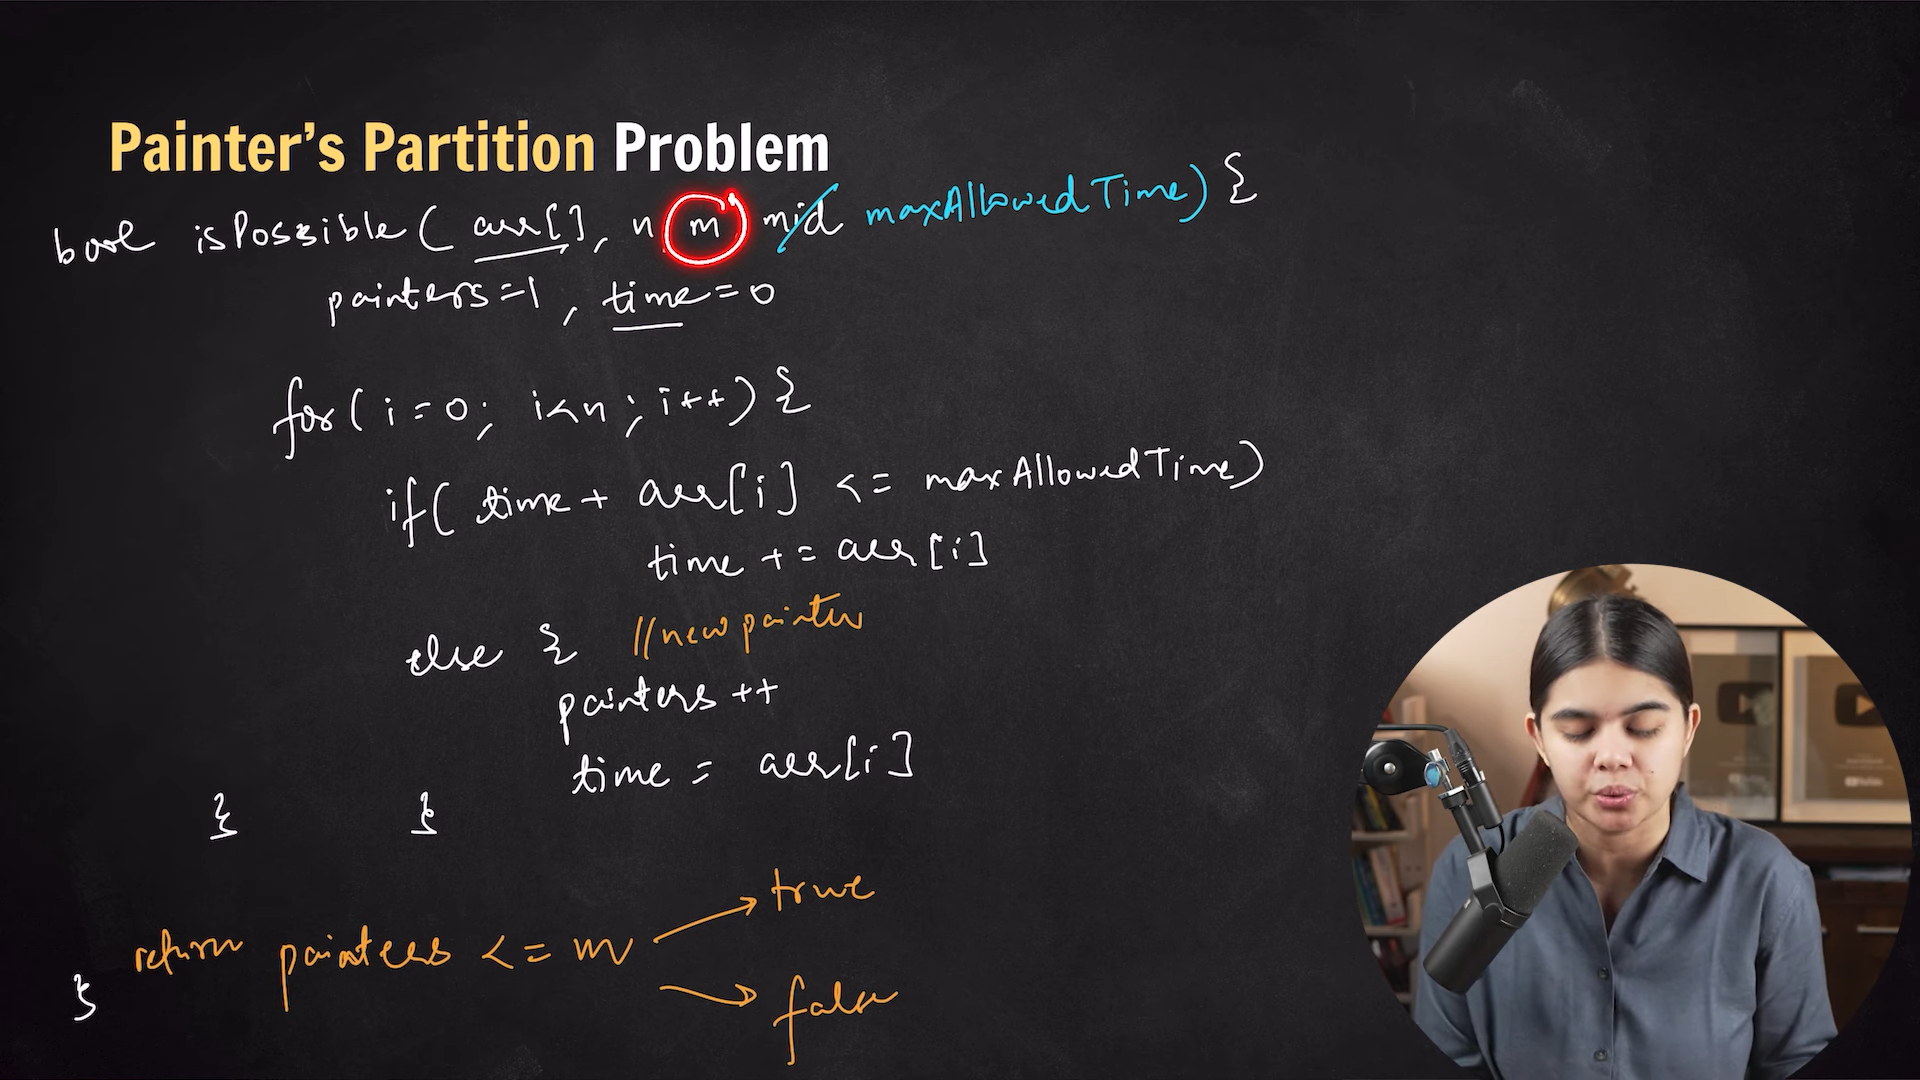 Painter's Partition Problem
bool isPossible( arr[], n m mid maxAllowedTime) {
painters=1, time=0
for( i=0; i<n; i++) {
if( time + arr[i] <= maxAllowedTime)
time += arr[i]
else { //new painter
painters ++
time = arr[i]
} }
return painters <= m
true
false
}